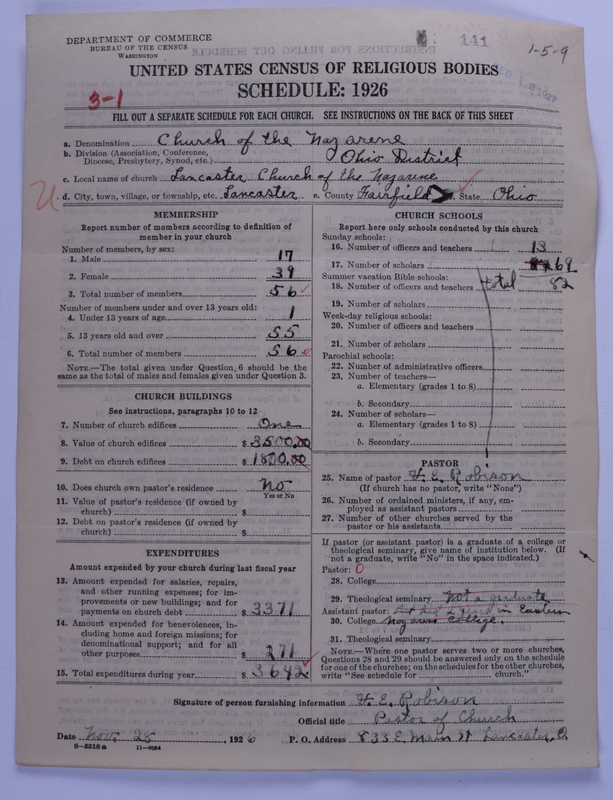 DEPARTMENT OF COMMERCE
BUREAU OF THE CENSUS
WASHINGTON
141
1-5-9
UNITED STATES CENSUS OF RELIGIOUS BODIES
SCHEDULE: 1926
3-1
FILL OUT A SEPARATE SCHEDULE FOR EACH CHURCH. SEE INSTRUCTIONS ON THE BACK OF THIS SHEET
a. Denomination Church of the Nazarene
b. Division (Association, Conference, Diocese, Presbytery, Synod, etc.) Ohio District
c. Local name of church Lancaster Church of the Nazarene
d. City, town, village, or township, etc. Lancaster e. County Fairfield f. State Ohio
MEMBERSHIP
Report number of members according to definition of
member in your church
Number of members, by sex:
1. Male 17
2. Female 39
3. Total number of members 56
Number of members under and over 13 years old:
4. Under 13 years of age 1
5. 13 years old and over 55
6. Total number of members 56
NOTE.—The total given under Question 6 should be the
same as the total of males and females given under Question 3.
CHURCH BUILDINGS
See instructions, paragraphs 10 to 12
7. Number of church edifices One
8. Value of church edifices $ 3500.00
9. Debt on church edifices $ 1800.00
10. Does church own pastor's residence? No
Yes or No
11. Value of pastor's residence (if owned by
church) $
12. Debt on pastor's residence (if owned by
church) $
EXPENDITURES
Amount expended by your church during last fiscal year
13. Amount expended for salaries, repairs,
and other running expenses; for im-
provements or new buildings; and for
payments on church debt $ 3371
14. Amount expended for benevolences, in-
cluding home and foreign missions; for
denominational support; and for all
other purposes $ 271
15. Total expenditures during year $ 3642
CHURCH SCHOOLS
Report here only schools conducted by this church
Sunday schools:
16. Number of officers and teachers 13
17. Number of scholars 69
Summer vacation Bible schools:
18. Number of officers and teachers total 82
19. Number of scholars
Week-day religious schools:
20. Number of officers and teachers
21. Number of scholars
Parochial schools:
22. Number of administrative officers
23. Number of teachers—
a. Elementary (grades 1 to 8)
b. Secondary
24. Number of scholars—
a. Elementary (grades 1 to 8)
b. Secondary
PASTOR
25. Name of pastor H. E. Robison
(If church has no pastor, write "None")
26. Number of ordained ministers, if any, em-
ployed as assistant pastors
27. Number of other churches served by the
pastor or his assistants
If pastor (or assistant pastor) is a graduate of a college or
theological seminary, give name of institution below. (If
not a graduate, write "No" in the space indicated.)
Pastor: 0
28. College
29. Theological seminary Not a graduate
Assistant pastor: in Eastern
30. College Nazarene College.
31. Theological seminary
NOTE.—Where one pastor serves two or more churches,
Questions 28 and 29 should be answered only on the schedule
for one of the churches; on the schedules for the other churches,
write "See schedule for church."
Signature of person furnishing information H. E. Robison
Official title Pastor of Church
Date Nov. 25, 1926 P. O. Address 833 E. Main St Lancaster, O.
8-5518 a 11-9084